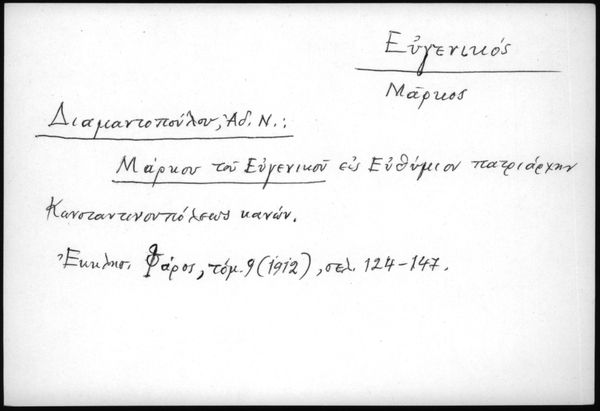 Εὐγενικός
Μᾶρκος
Διαμαντοπούλου, Ἀδ. Ν.:
Μάρκου τοῦ Εὐγενικοῦ εἰς Εὐθύμιον πατριάρχην
Κωνσταντινουπόλεως κανών.
Ἐκκλησ. Φάρος, τόμ. 9 (1912), σελ. 124-147.